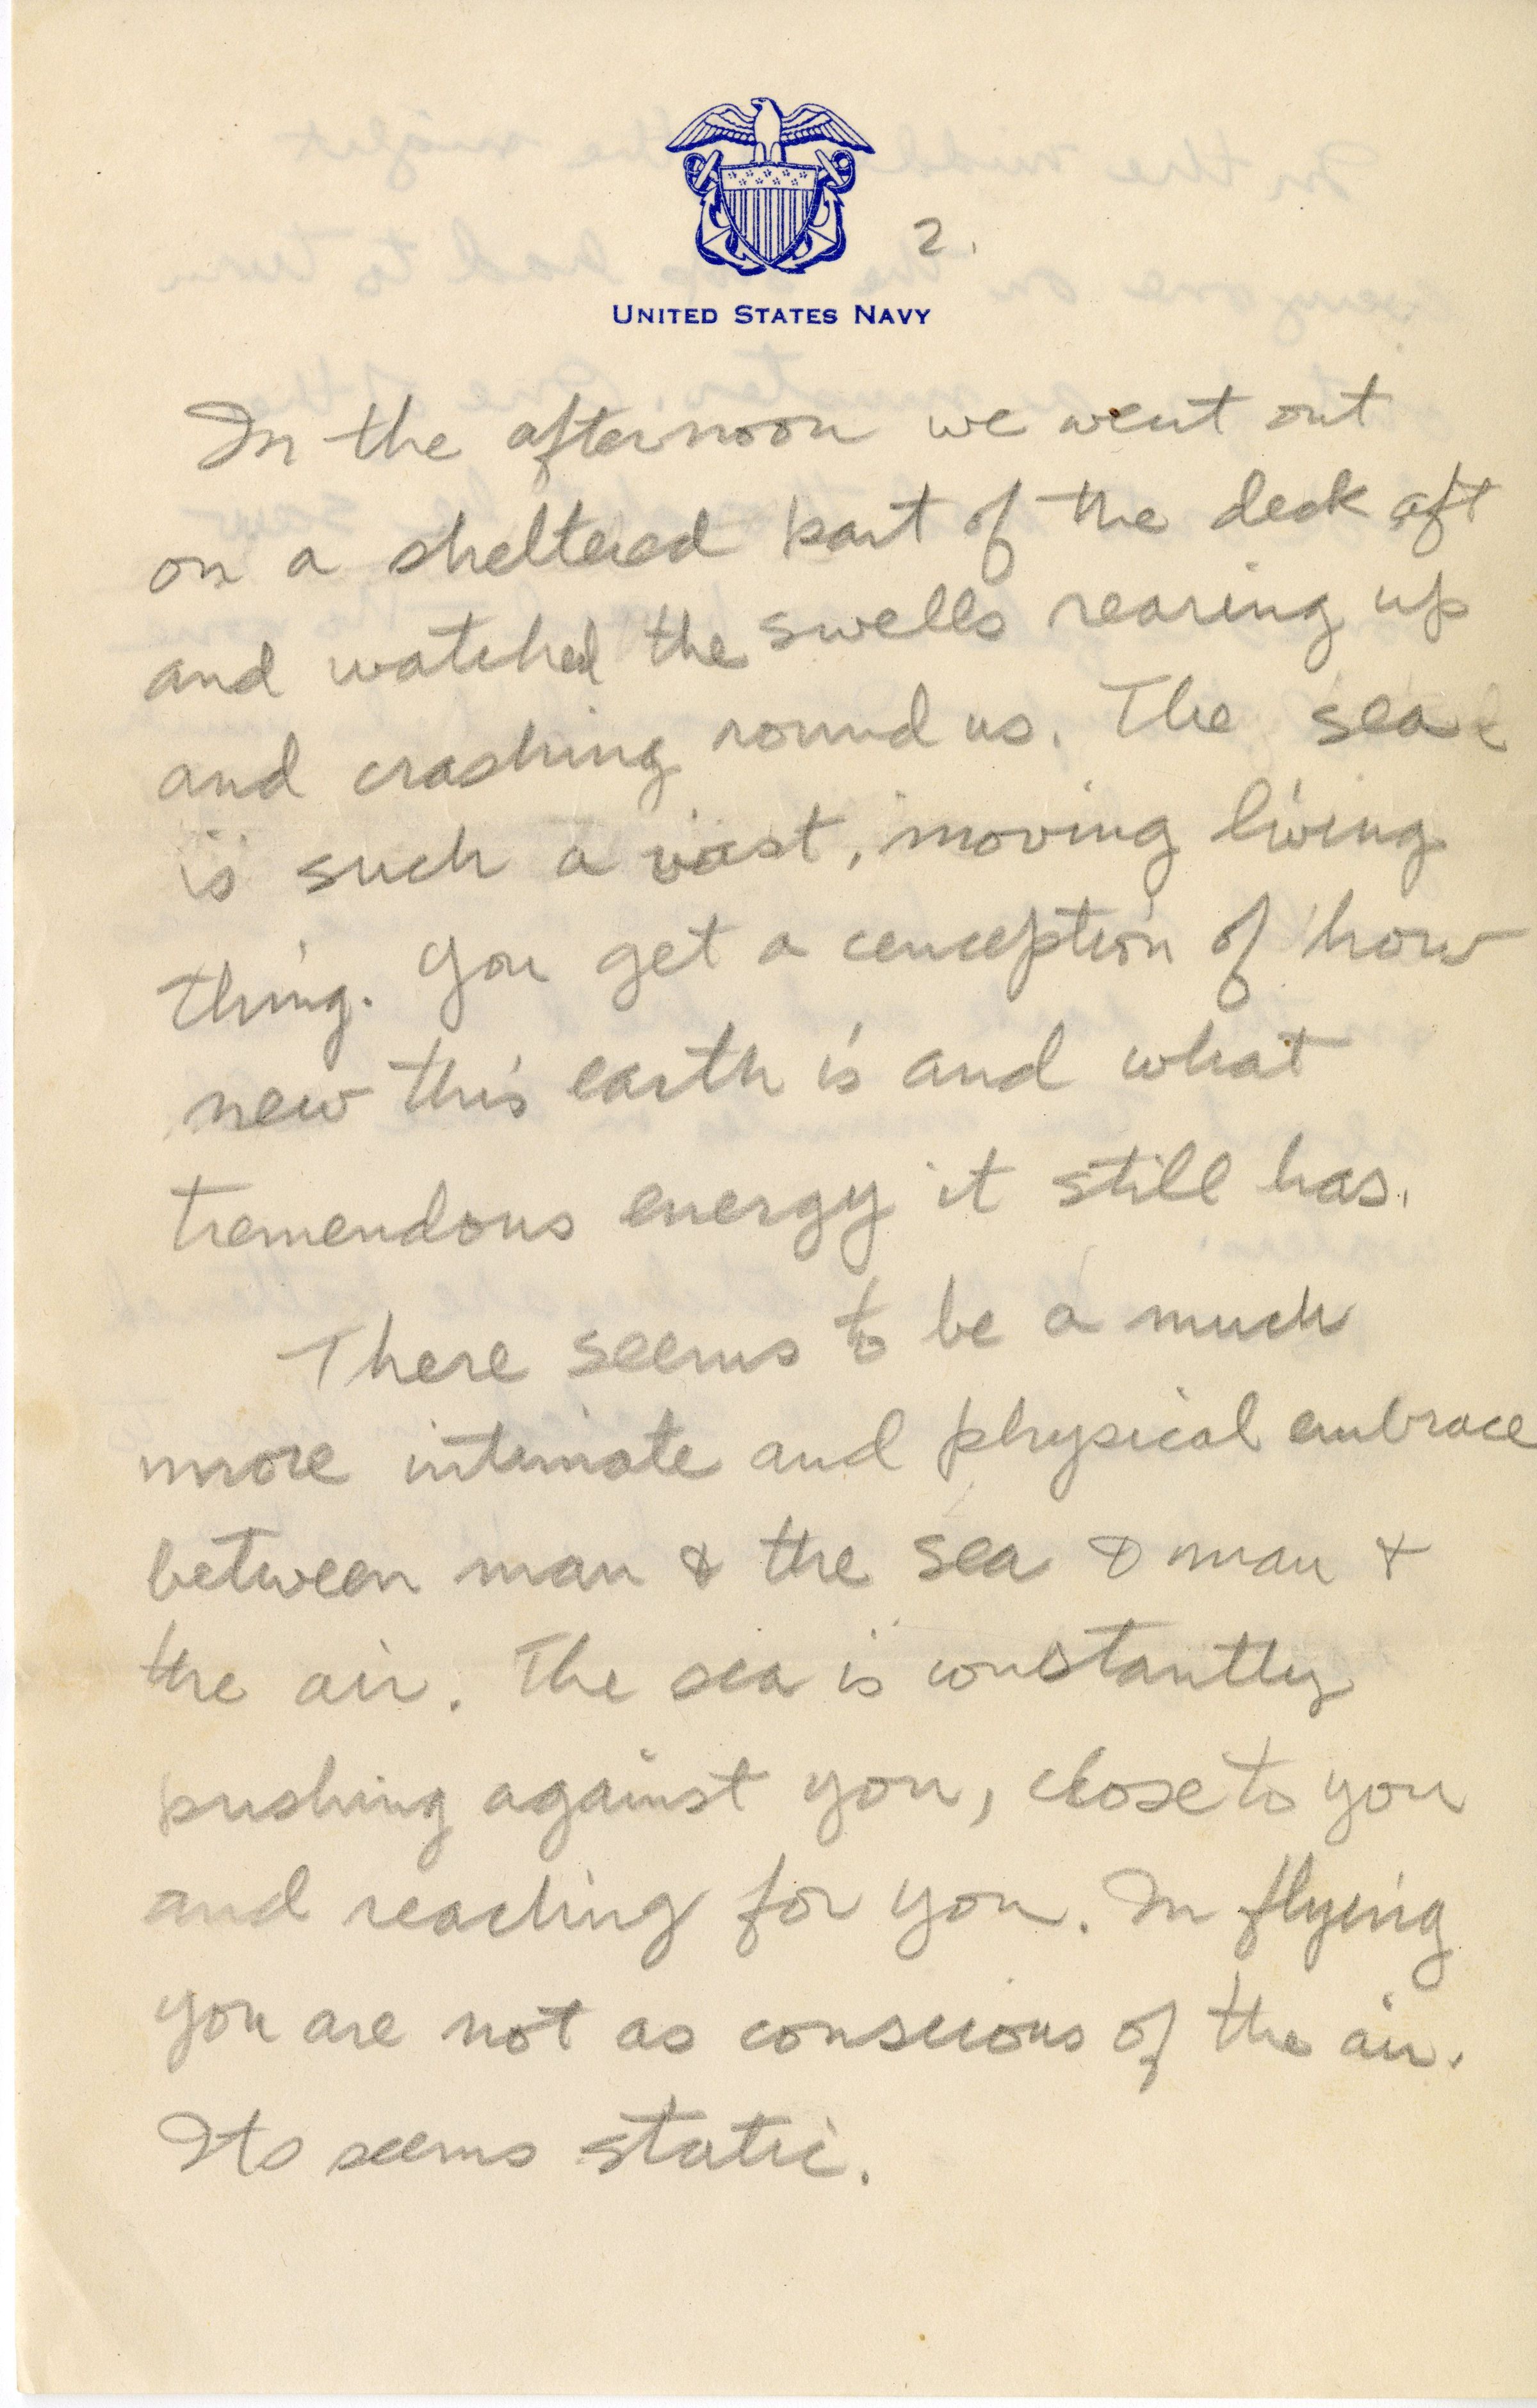 2.
UNITED STATES NAVY
In the afternoon we went out
on a sheltered part of the deck aft
and watched the swells rearing up
and crashing round us. The sea
is such a vast, moving living
thing. You get a conception of how
new this earth is and what
tremendous energy it still has.
There seems to be a much
more intimate and physical embrace
between man & the sea & man &
the air. The sea is constantly
pushing against you, close to you
and reaching for you. In flying
you are not as conscious of the air.
Its seems static.